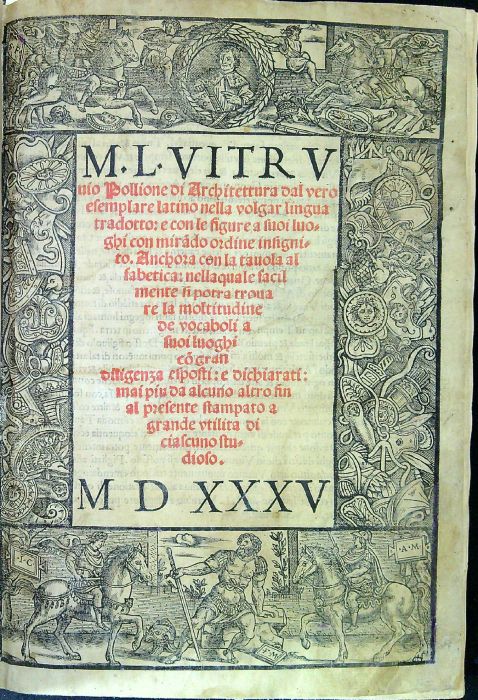 M·L·VITRV
uio Pollione di Architettura dal vero
esemplare latino nella volgar lingua
tradotto: e con le figure a suoi luo-
ghi con mirãdo ordine insigni-
to. Anchora con la tauola al
fabetica: nellaquale facil
mente si potra troua
re la moltitudine
de vocaboli a
suoi luoghi
cõ gran
diligenza esposti: e dichiarati:
mai piu da alcuno altro fin
al presente stampato a
grande vtilita di
ciascuno stu-
dioso.
M D XXXV
·A·M·